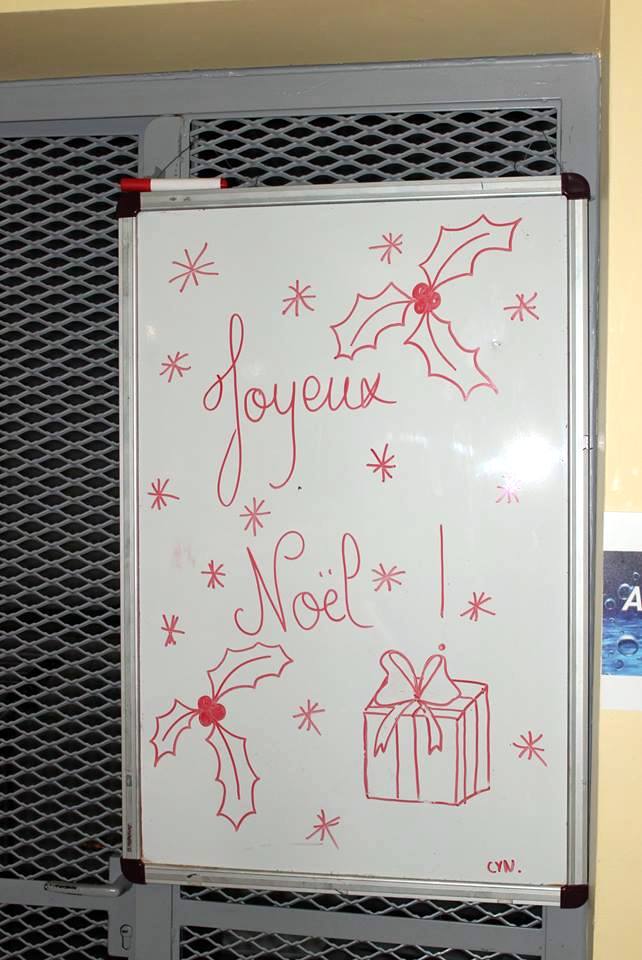 Joyeux
Noël !
CYN.
A